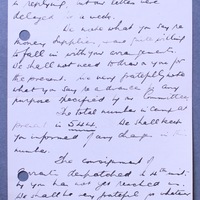 in replying, and our letters were
delayed is a week.
We note what you say re
money supplies, and are willing
to fall in with your arrangements.
We shall not need to draw on you for
the present. We very gratefully note
what you say re advance of any
purpose specified by our Committee.
The total number in camp at
present is 544. We shall keep
you informed of any change in this
number.
The consignment of
despatched
by you has not yet reached us.
We shall be very grateful for